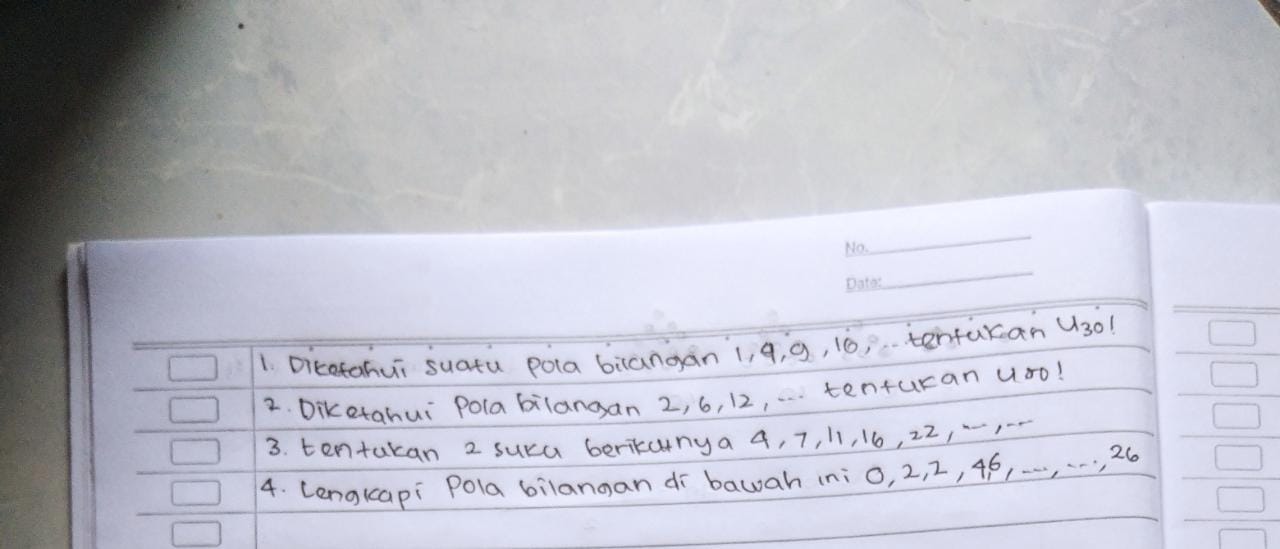 No.
Date:
1. Diketahui suatu pola bilangan 1, 4, 9, 16, ... tentukan U30!
2. Diketahui Pola bilangan 2, 6, 12, ... tentukan
3. tentukan 2 suku berikutnya 4, 7, 11, 16, 22, ..., ...
4. Lengkapi Pola bilangan di bawah ini 0, 2, 2, 46, ..., ..., 26